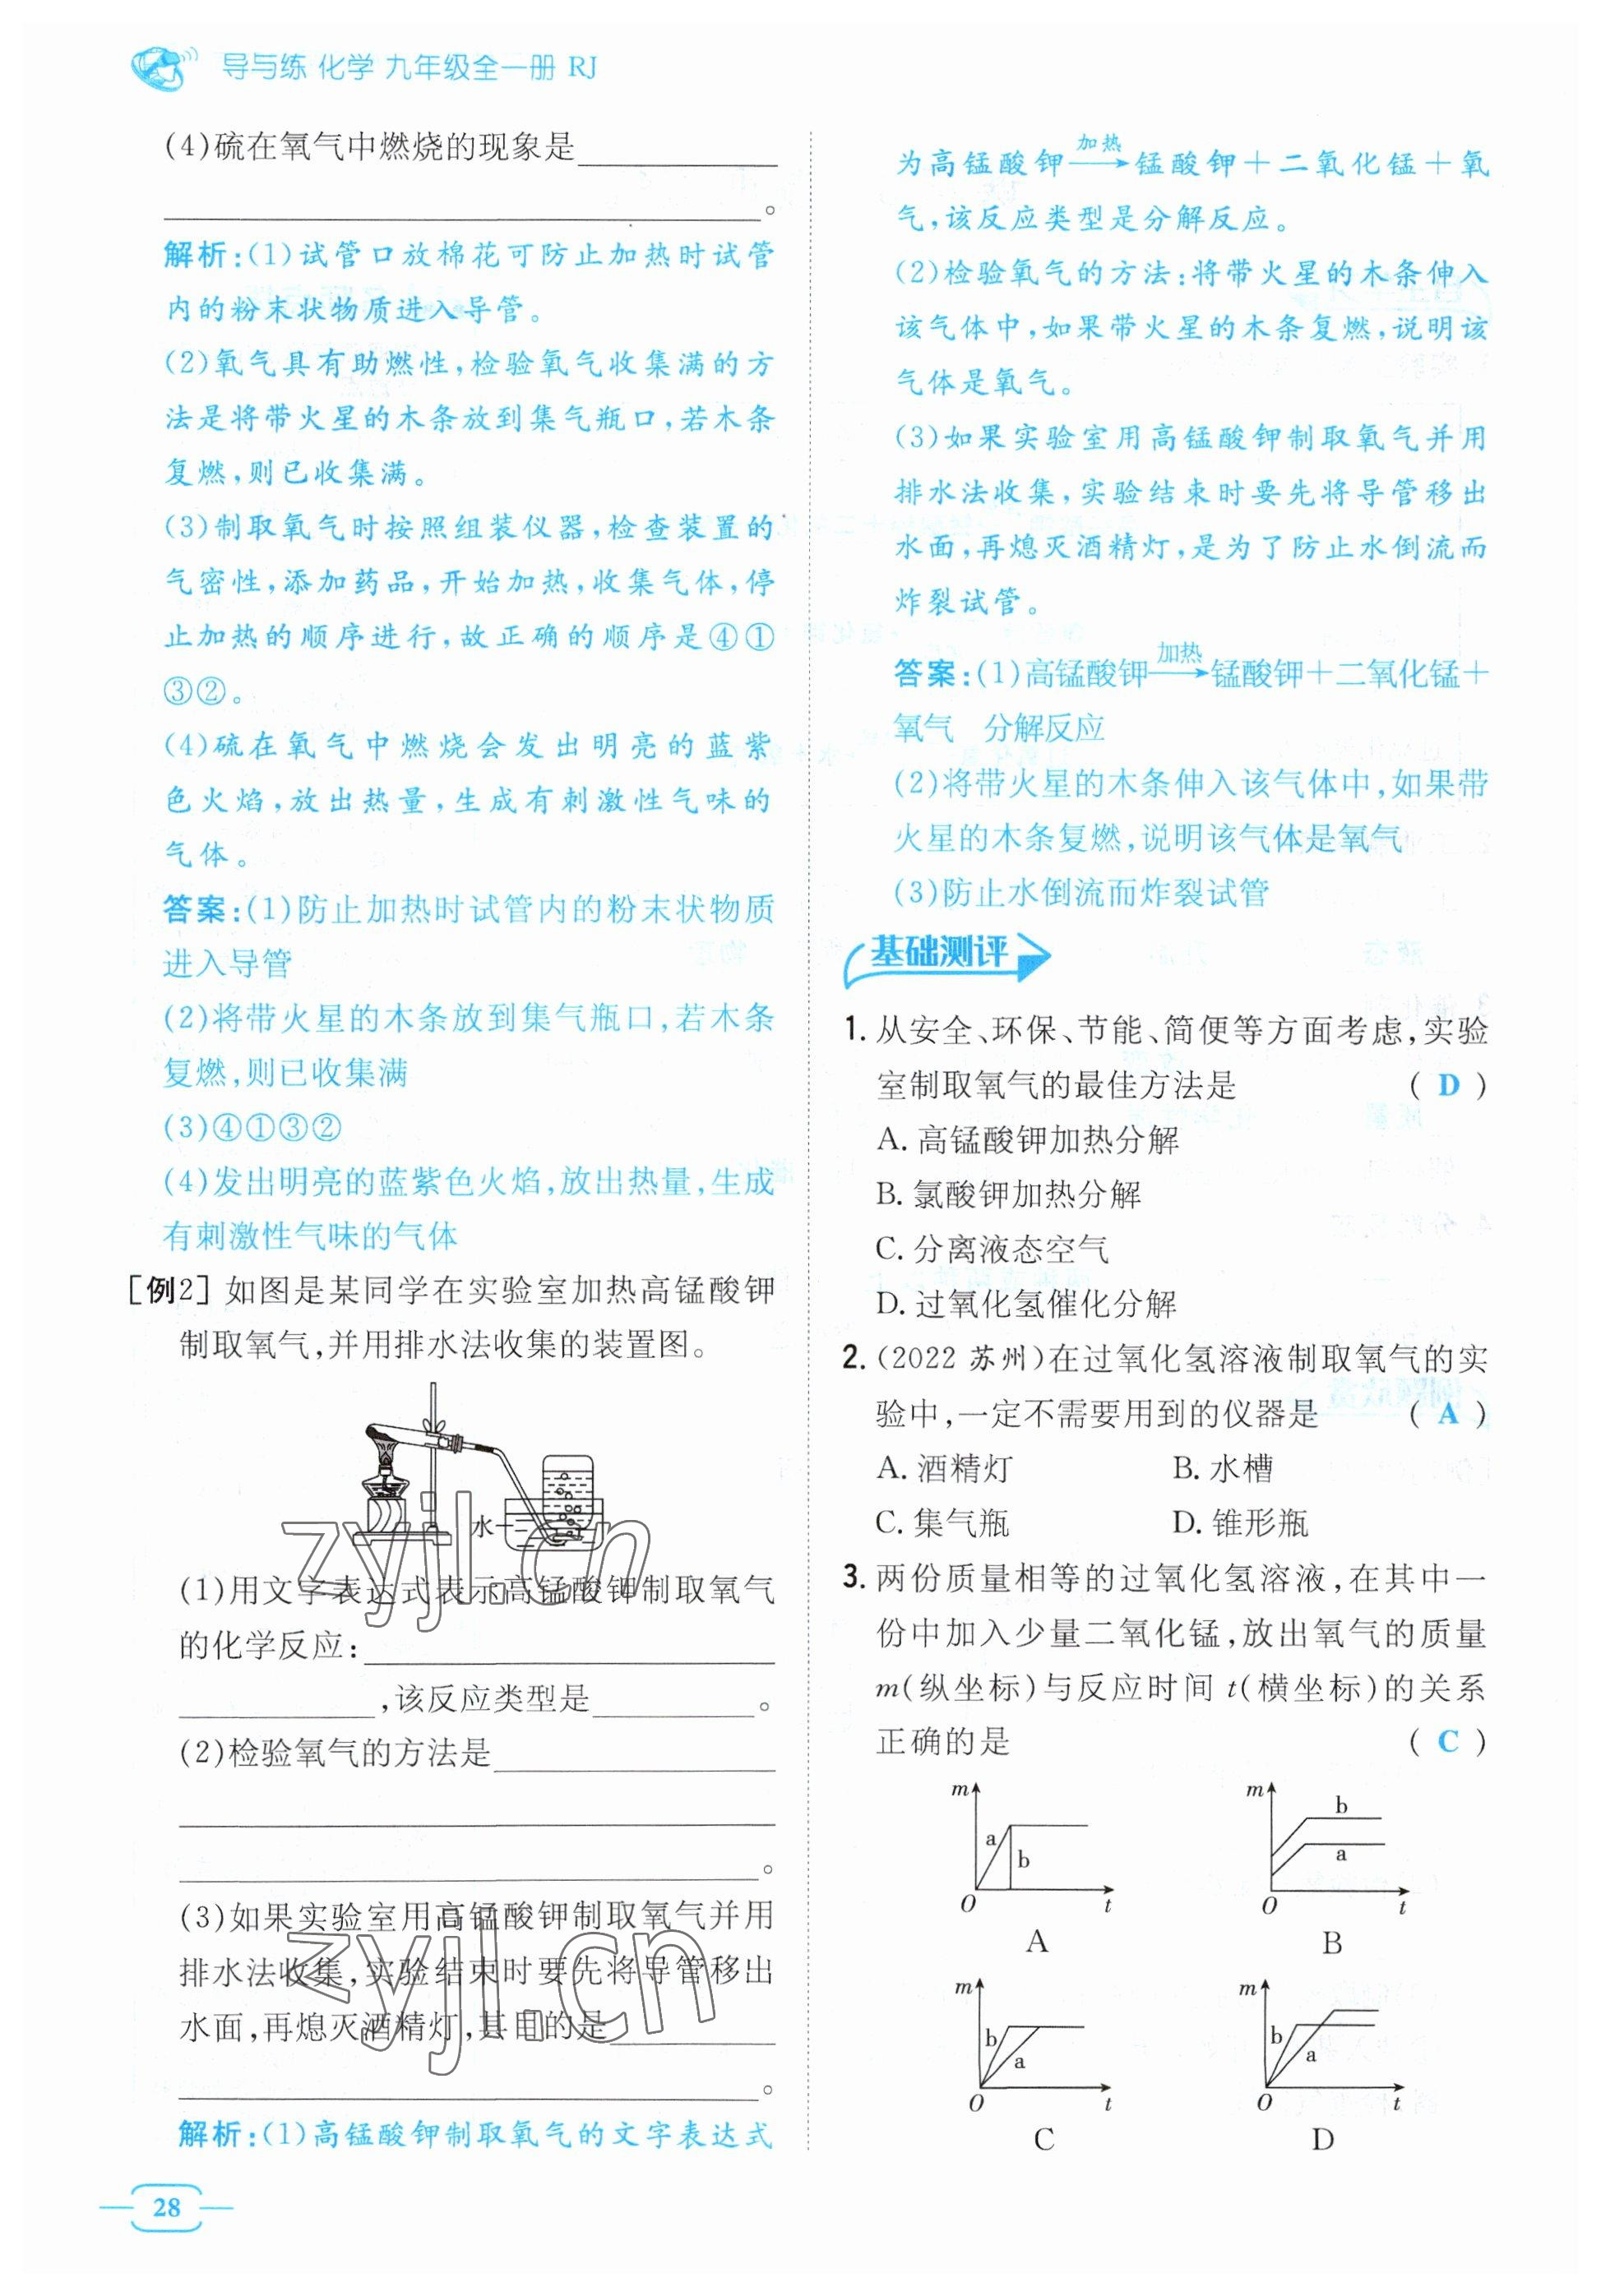 导与练 化学 九年级全一册 RJ
(4)硫在氧气中燃烧的现象是
。
解析:(1)试管口放棉花可防止加热时试管
内的粉末状物质进入导管。
(2)氧气具有助燃性,检验氧气收集满的方
法是将带火星的木条放到集气瓶口,若木条
复燃,则已收集满。
(3)制取氧气时按照组装仪器,检查装置的
气密性,添加药品,开始加热,收集气体,停
止加热的顺序进行,故正确的顺序是④①
③②。
(4)硫在氧气中燃烧会发出明亮的蓝紫
色火焰,放出热量,生成有刺激性气味的
气体。
答案:(1)防止加热时试管内的粉末状物质
进入导管
(2)将带火星的木条放到集气瓶口,若木条
复燃,则已收集满
(3)④①③②
(4)发出明亮的蓝紫色火焰,放出热量,生成
有刺激性气味的气体
[例2] 如图是某同学在实验室加热高锰酸钾
制取氧气,并用排水法收集的装置图。
水
zyjl.cn
(1)用文字表达式表示高锰酸钾制取氧气
的化学反应:
,该反应类型是 。
(2)检验氧气的方法是
。
(3)如果实验室用高锰酸钾制取氧气并用
排水法收集,实验结束时要先将导管移出
水面,再熄灭酒精灯,其目的是
。
zyjl.cn
解析:(1)高锰酸钾制取氧气的文字表达式
28
加热
为高锰酸钾→锰酸钾+二氧化锰+氧
气,该反应类型是分解反应。
(2)检验氧气的方法:将带火星的木条伸入
该气体中,如果带火星的木条复燃,说明该
气体是氧气。
(3)如果实验室用高锰酸钾制取氧气并用
排水法收集,实验结束时要先将导管移出
水面,再熄灭酒精灯,是为了防止水倒流而
炸裂试管。
加热
答案:(1)高锰酸钾→锰酸钾+二氧化锰+
氧气 分解反应
(2)将带火星的木条伸入该气体中,如果带
火星的木条复燃,说明该气体是氧气
(3)防止水倒流而炸裂试管
基础测评
1. 从安全、环保、节能、简便等方面考虑,实验
室制取氧气的最佳方法是 ( D )
A. 高锰酸钾加热分解
B. 氯酸钾加热分解
C. 分离液态空气
D. 过氧化氢催化分解
2. (2022 苏州)在过氧化氢溶液制取氧气的实
验中,一定不需要用到的仪器是 ( A )
A. 酒精灯 B. 水槽
C. 集气瓶 D. 锥形瓶
3. 两份质量相等的过氧化氢溶液,在其中一
份中加入少量二氧化锰,放出氧气的质量
m(纵坐标)与反应时间 t(横坐标)的关系
正确的是 ( C )
m a b O t
A
m b a O t
B
m b a O t
C
m b a O t
D